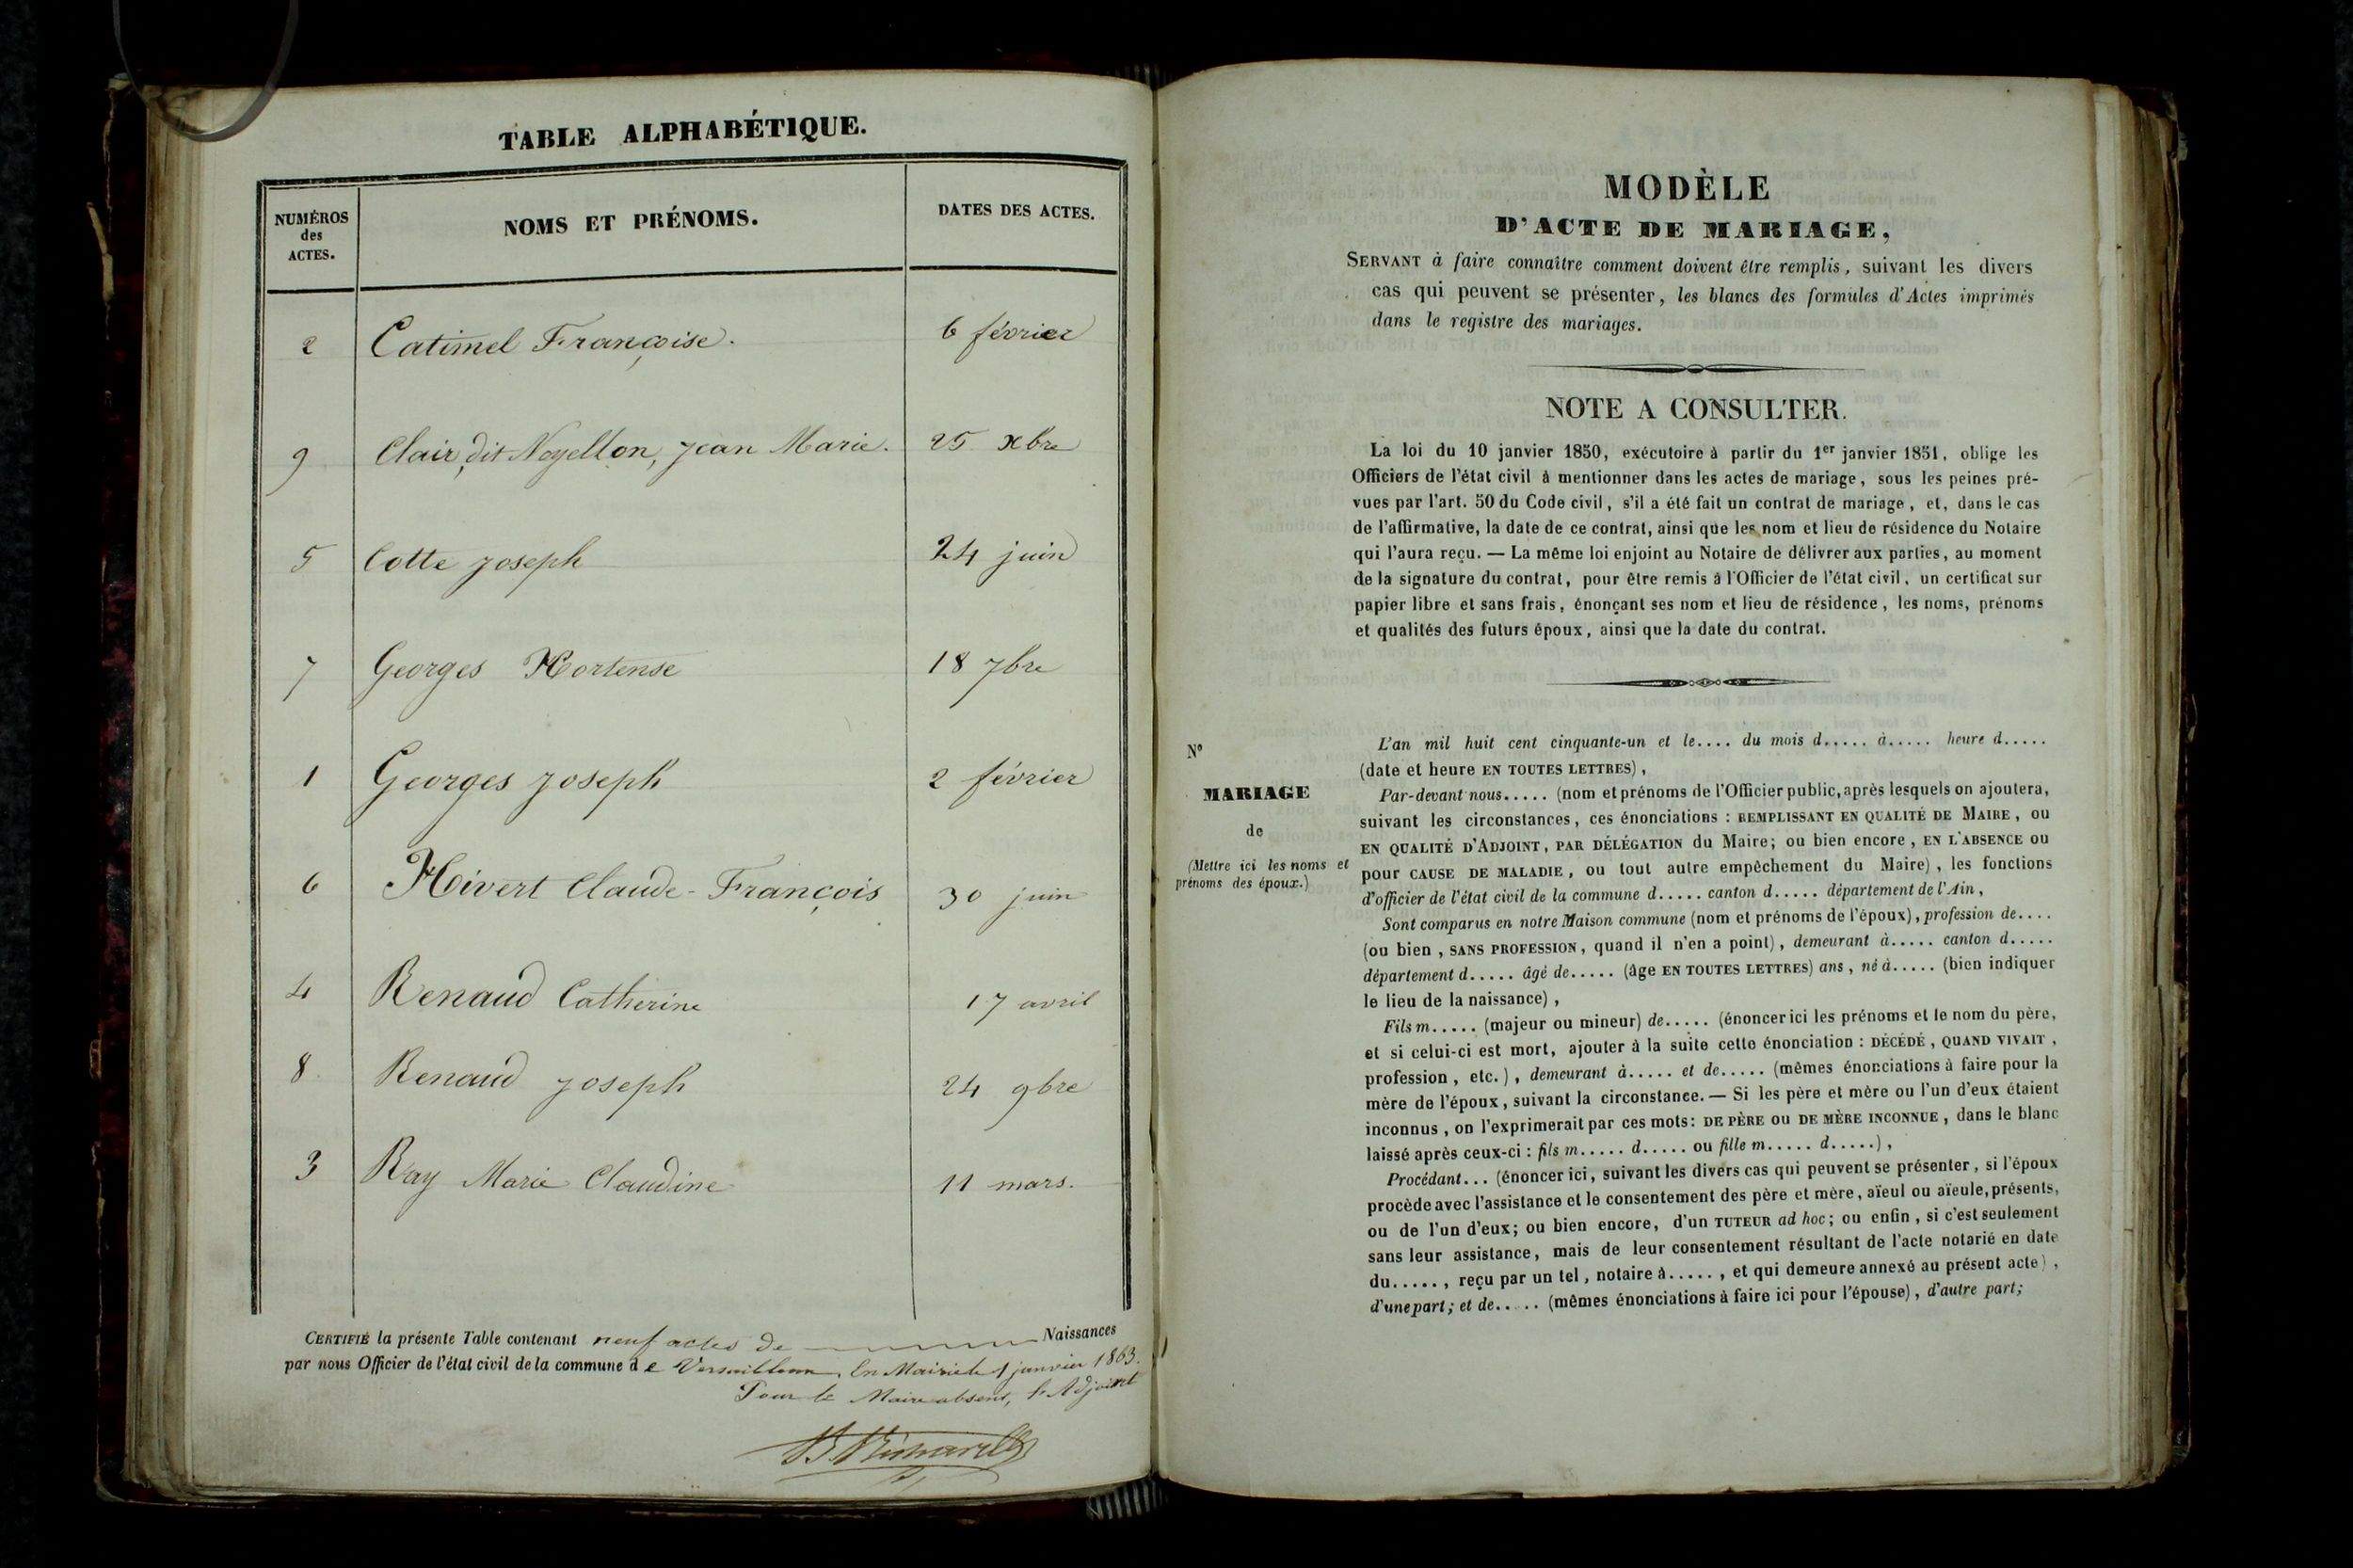 TABLE ALPHABÉTIQUE.
NUMÉROS des ACTES. NOMS ET PRÉNOMS. DATES DES ACTES.
2 Catimel Françoise. 6 février
9 Clair, dit Noyellon, Jean Marie. 25 xbre
5 Cotte Joseph 24 juin
7 Georges Hortense 18 7bre
1 Georges Joseph 2 février
6 Hivert Claude-François 30 juin
4 Renaud Catherine 17 avril
8 Renaud Joseph 24 9bre
3 Ray Marie Claudine 11 mars.
CERTIFIÉ la présente Table contenant neuf actes de Naissances
par nous Officier de l'état civil de la commune de En Mairie le 1 janvier 1863.
Pour le Maire absent, l'Adjoint
MODÈLE
D'ACTE DE MARIAGE,
SERVANT à faire connaître comment doivent être remplis, suivant les divers
cas qui peuvent se présenter, les blancs des formules d'Actes imprimés
dans le registre des mariages.
NOTE A CONSULTER.
La loi du 10 janvier 1850, exécutoire à partir du 1er janvier 1851, oblige les
Officiers de l'état civil à mentionner dans les actes de mariage, sous les peines pré-
vues par l'art. 50 du Code civil, s'il a été fait un contrat de mariage, et, dans le cas
de l'affirmative, la date de ce contrat, ainsi que les nom et lieu de résidence du Notaire
qui l'aura reçu. — La même loi enjoint au Notaire de délivrer aux parties, au moment
de la signature du contrat, pour être remis à l'Officier de l'état civil, un certificat sur
papier libre et sans frais, énonçant ses nom et lieu de résidence, les noms, prénoms
et qualités des futurs époux, ainsi que la date du contrat.
N°
MARIAGE
de
(Mettre ici les noms et
prénoms des époux.)
L'an mil huit cent cinquante-un et le.... du mois d..... à..... heure d.....
(date et heure EN TOUTES LETTRES),
Par-devant nous..... (nom et prénoms de l'Officier public, après lesquels on ajoutera,
suivant les circonstances, ces énonciations : REMPLISSANT EN QUALITÉ DE MAIRE, ou
EN QUALITÉ D'ADJOINT, PAR DÉLÉGATION du Maire; ou bien encore, EN L'ABSENCE ou
pour CAUSE DE MALADIE, ou tout autre empêchement du Maire), les fonctions
d'officier de l'état civil de la commune d..... canton d..... département de l'Ain,
Sont comparus en notre Maison commune (nom et prénoms de l'époux), profession de....
(ou bien, SANS PROFESSION, quand il n'en a point), demeurant à..... canton d.....
département d..... âgé de..... (âge EN TOUTES LETTRES) ans, né à..... (bien indiquer
le lieu de la naissance),
Fils m..... (majeur ou mineur) de..... (énoncer ici les prénoms et le nom du père,
et si celui-ci est mort, ajouter à la suite cette énonciation : DÉCÉDÉ, QUAND VIVAIT,
profession, etc.), demeurant à..... et de..... (mêmes énonciations à faire pour la
mère de l'époux, suivant la circonstance. — Si les père et mère ou l'un d'eux étaient
inconnus, on l'exprimerait par ces mots : DE PÈRE ou DE MÈRE INCONNUE, dans le blanc
laissé après ceux-ci : fils m..... d..... ou fille m..... d.....),
Procédant... (énoncer ici, suivant les divers cas qui peuvent se présenter, si l'époux
procède avec l'assistance et le consentement des père et mère, aïeul ou aïeule, présents,
ou de l'un d'eux; ou bien encore, d'un TUTEUR ad hoc; ou enfin, si c'est seulement
sans leur assistance, mais de leur consentement résultant de l'acte notarié en date
du....., reçu par un tel, notaire à....., et qui demeure annexé au présent acte),
d'une part; et de..... (mêmes énonciations à faire ici pour l'épouse), d'autre part;